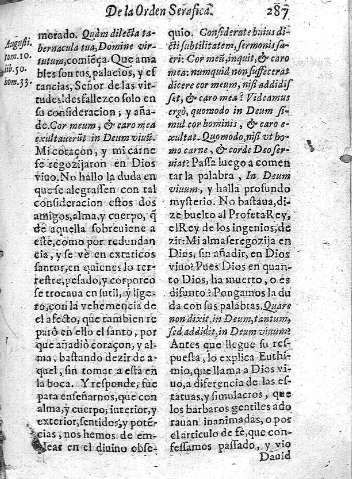 De la Orden Serafica. 287
Augusti.
tom. 10.
lib. 50.
hom. 33.
morado. Quàm dilecta ta-
bernacula tua, Domine vir-
tutum, comiēça. Que ama
bles son tus, palacios, y es
tancias, Señor de las vir-
tudes! desfallezco solo en
su consideracion, y aña-
de. Cor meum, & caro mea
exultauerūt in Deum viuū.
Mi coraçon, y mi carne
se regozijaron en Dios
viuo. No hallo la duda en
que se alegrassen con tal
consideracion estos dos
amigos, alma, y cuerpo, q̃
de aquella sobreuiene a
este, como por redundan
cia, y se vè en extaticos
santos, en quienes lo ter-
restre, pesado, y corporeo
se trocaua en sutil, y lige-
ro, con la vehemencia de
el afecto, que tambien re
parò en ello el santo, por
que añadiò coraçon, y al-
ma, bastando dezir de a-
quel, sin tomar a esta en
la boca. Y responde, fue
para enseñarnos, que con
alma, y cuerpo; interior, y
exterior, sentidos, y poten
cias, nos hemos de em-
plear en el diuino obse-
quio. Considerate huius di-
cti subtilitatem, sermonis sa-
neri: Cor meū, inquit, & caro
mea: nunquid non sufficerat
dicere cor meum, nisi addidis
set, & caro mea? Videamus
ergò, quomodo in Deum si-
mul cor hominis, & caro e-
xultat. Quomodo, nisi vt ho-
mo carne, & corde Deo ser-
uiat? Passa luego a comen
tar la palabra, In Deum
viuum, y halla profundo
mysterio. No bastaua, di-
ze buelto al Profeta Rey,
el Rey de los ingenios, de
zir: Mi alma se regozija en
Dios, sin añadir, en Dios
viuo? Pues Dios en quan-
to Dios, ha muerto, o es
difunto? Pongamos la du
da con sus palabras. Quare
non dixit, in Deum, tantum,
sed addidit, in Deum viuum?
Antes que llegue su res-
puesta, lo explica Euthi-
mio, que llama a Dios vi-
uo, a diferencia de las es-
tatuas, y simulacros, que
los barbaros gentiles ado
rauan inanimadas, o por
el articulo de fè, que con-
fessamos passado, y vio
Dauid